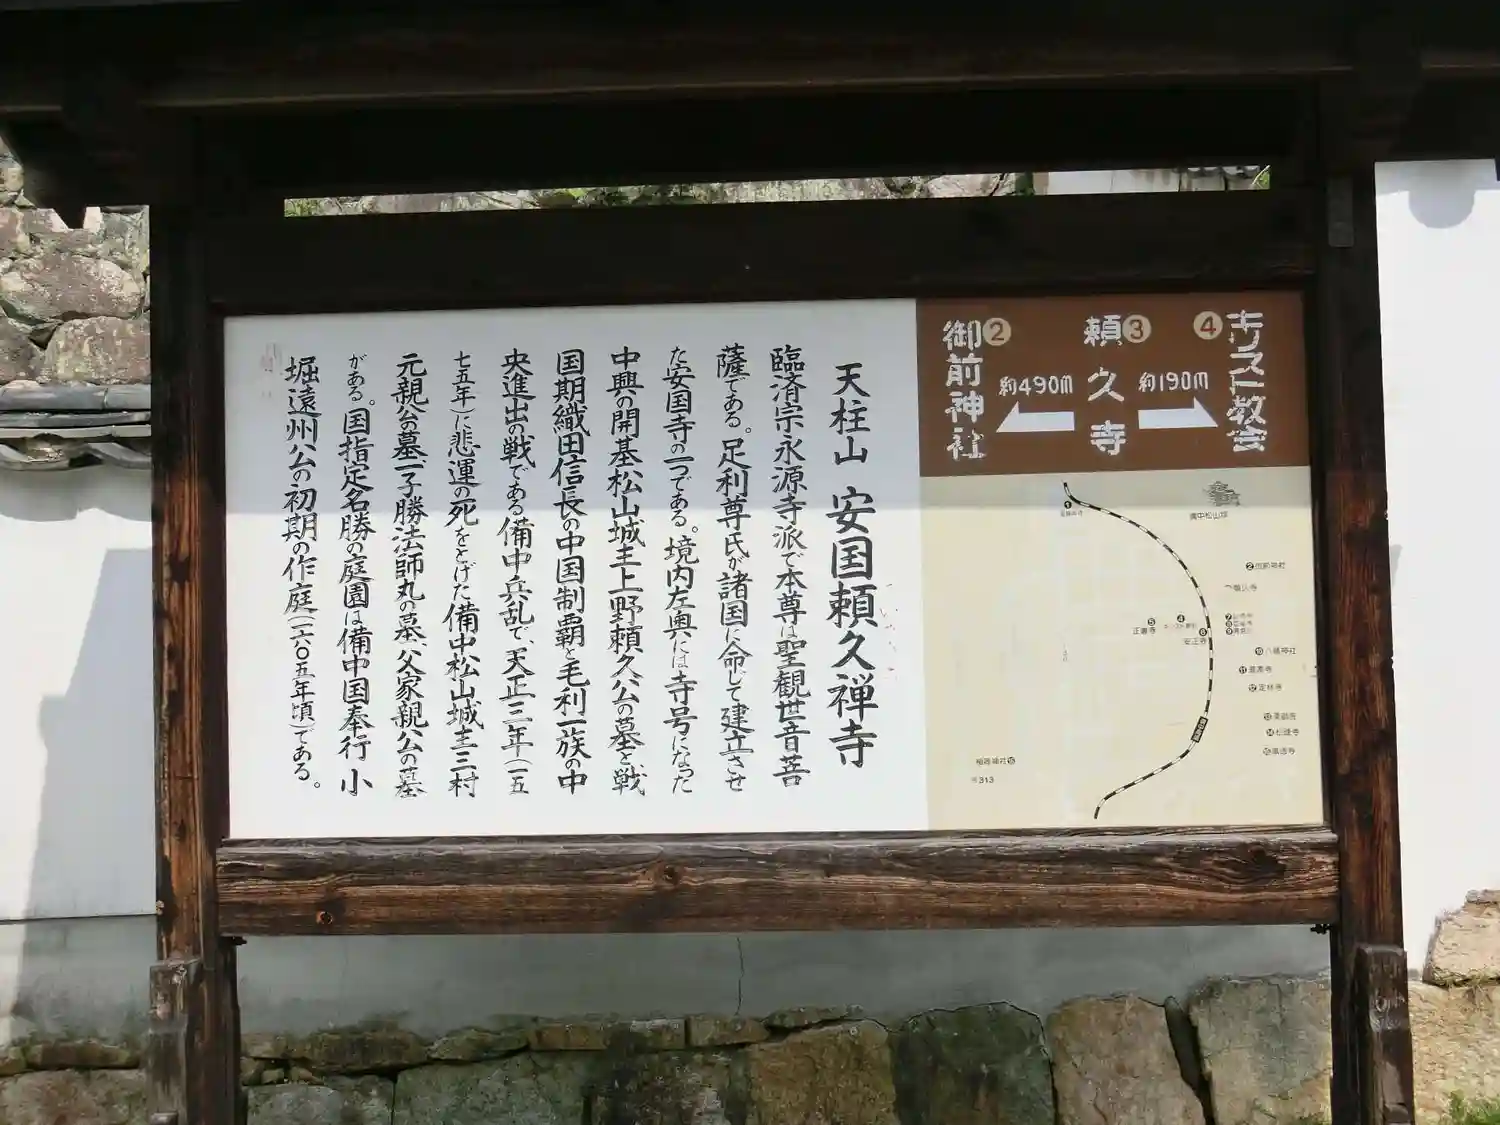 天柱山 安国頼久禅寺
臨済宗永源寺派で本尊は聖観世音菩
薩である。足利尊氏が諸国に命じて建立させ
た安国寺の一つである。境内左奥には寺号になった
中興の開基松山城主上野頼久公の墓と戦
国期織田信長の中国制覇と毛利一族の中
央進出の戦である備中兵乱で、天正三年(一五
七五年)に悲運の死をとげた備中松山城主三村
元親公の墓、一子勝法師丸の墓、父家親公の墓
がある。国指定名勝の庭園は備中国奉行 小
堀遠州公の初期の作庭(一六〇五年頃)である。
④キリスト教会
約190m
③頼久寺
約490m
②御前神社
①
備中松山城
②御前神社
頼久寺
④
⑤
正善寺
⑥
安正寺
⑦
⑧
⑨
⑩八幡神社
⑪
⑫定林寺
⑬
⑭松連寺
⑮
⑯
313